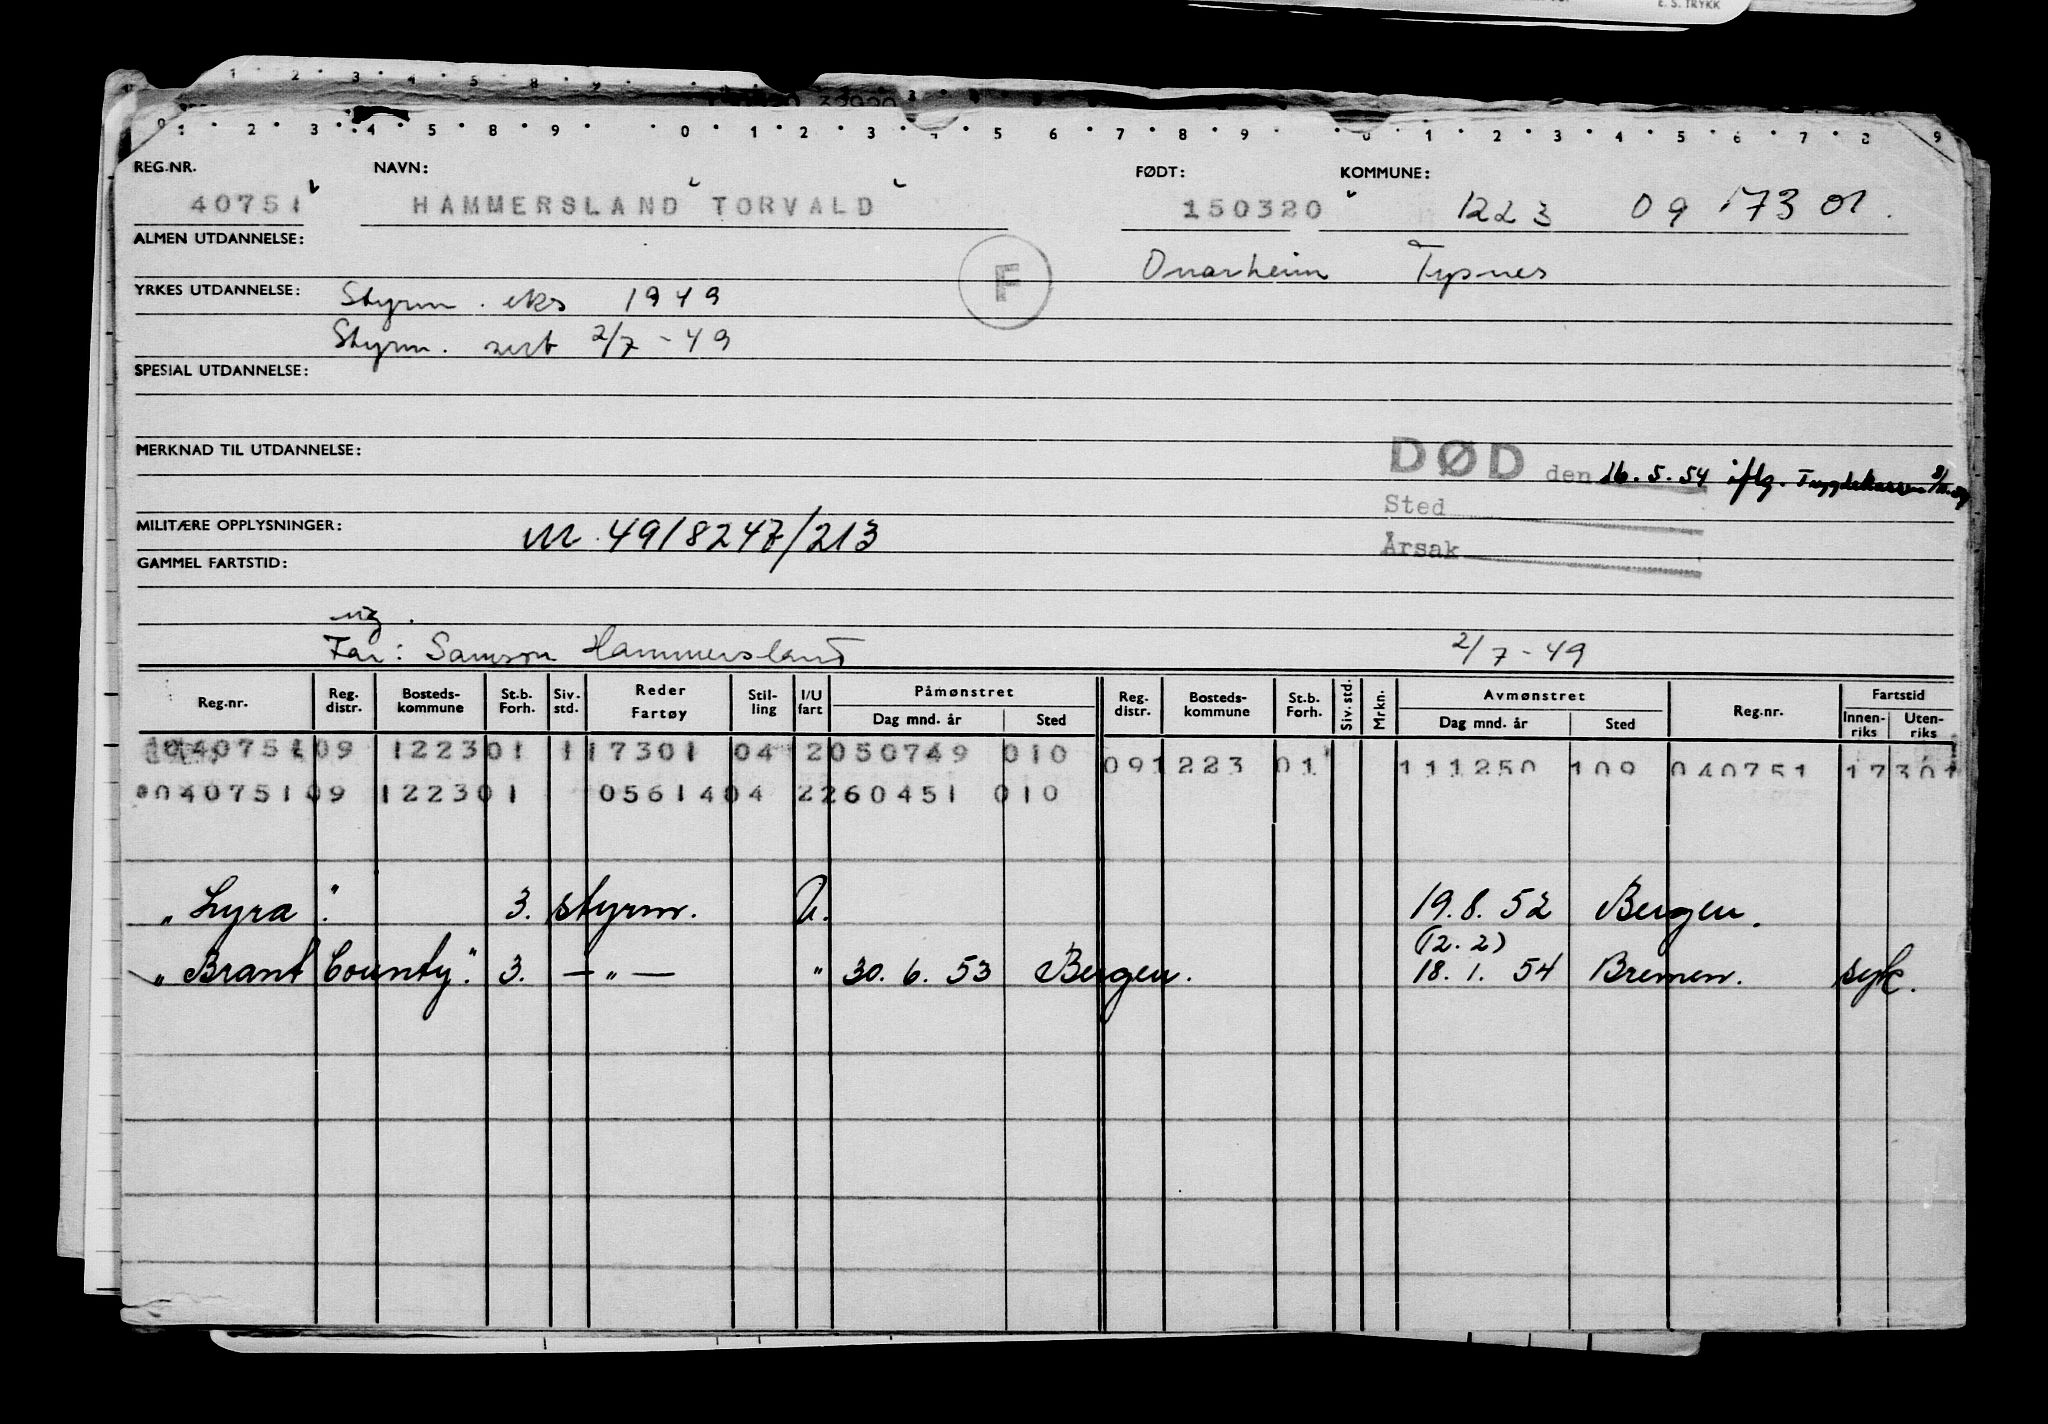 E. S. TRYKK
1 2 3 4 5 8 9
1 2 3 4 5 8 9 0 1 2 3 4 5 6 7 8 9 0 1 2 3 4 5 6 7 8 9
REG.NR. NAVN: FØDT: KOMMUNE:
40751 HAMMERSLAND TORVALD 150320 1223 09 17301.
ALMEN UTDANNELSE:
F Onarheim Tysnes
YRKES UTDANNELSE: Styrm. eks 1949
Styrm. sert 2/7-49
SPESIAL UTDANNELSE:
MERKNAD TIL UTDANNELSE:
DØD den 16.5.54 iflg. Trygdekassen
Sted
MILITÆRE OPPLYSNINGER: M. 49/8247/213
Årsak
GAMMEL FARTSTID:
ug.
Far: Samson Hammersland 2/7-49
Reg.nr. Reg. distr. Bosteds-kommune St.b. Forh. Siv. std. Reder Fartøy Stil-ling I/U fart Påmønstret Dag mnd. år Sted Reg. distr. Bosteds-kommune St.b. Forh. Siv. std. Mrkn. Avmønstret Dag mnd. år Sted Reg.nr. Fartstid Innen-riks Uten-riks
040751 09 1223 01 1 17301 04 2 050749 010 09 1223 01 111250 109 040751 17301
040751 09 1223 01 05614 04 2 260451 010
"Lyra". 3. styrm. U. 19.8.52 Bergen.
(12.2)
"Brant County". 3. —"— " 30.6.53 Bergen. 18.1.54 Bremen. syk.